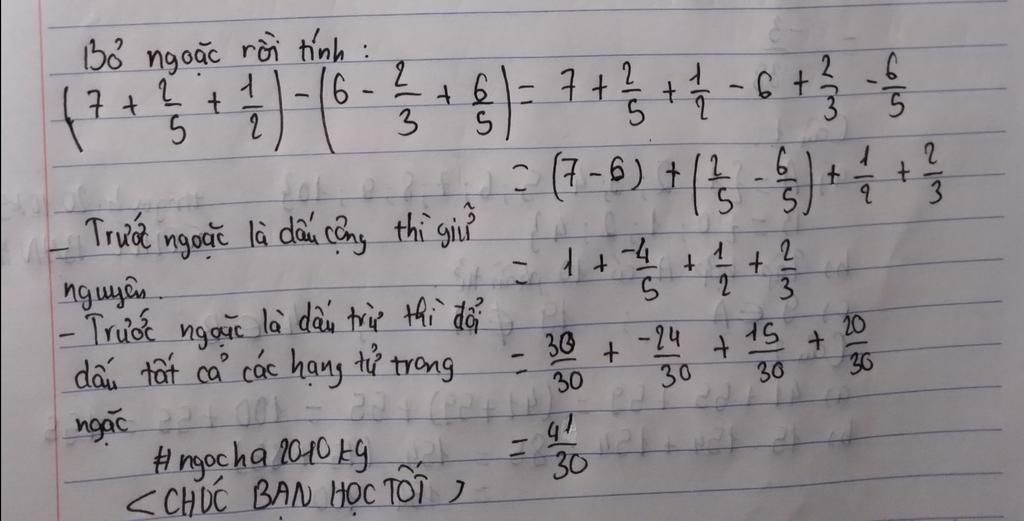 Bỏ ngoặc rồi tính:
(7 + 2/5 + 1/2) - (6 - 2/3 + 6/5) = 7 + 2/5 + 1/2 - 6 + 2/3 - 6/5
= (7 - 6) + (2/5 - 6/5) + 1/2 + 2/3
- Trước ngoặc là dấu cộng thì giữ
nguyên.
= 1 + -4/5 + 1/2 + 2/3
- Trước ngoặc là dấu trừ thì đổi
dấu tất cả các hạng tử trong
ngặc
= 30/30 + -24/30 + 15/30 + 20/30
= 41/30
#ngocha2010kg
<CHÚC BẠN HỌC TỐT>